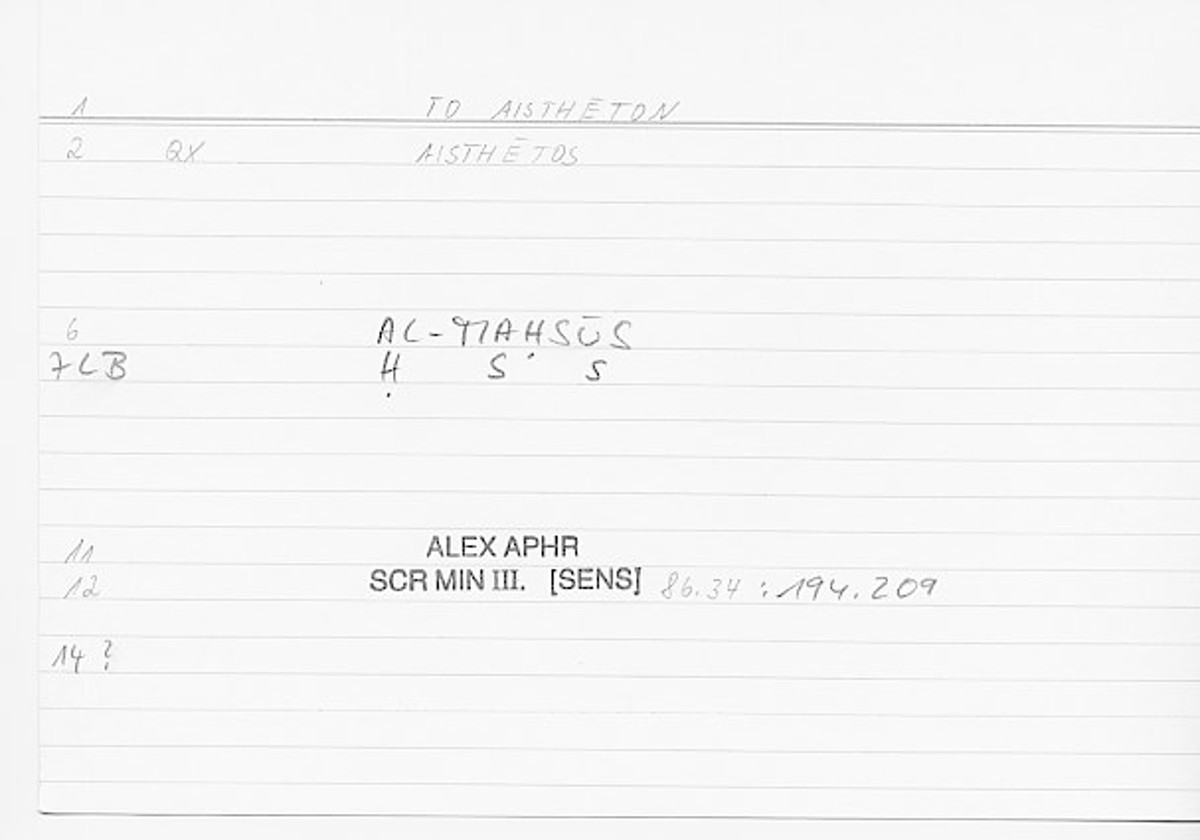 1 TO AISTHĒTON
2 QX AISTHĒTOS
6 AL-MAHSŪS
7LB Ḥ S S
11 ALEX APHR
12 SCR MIN III. [SENS] 86.34 : 194.209
14 ?